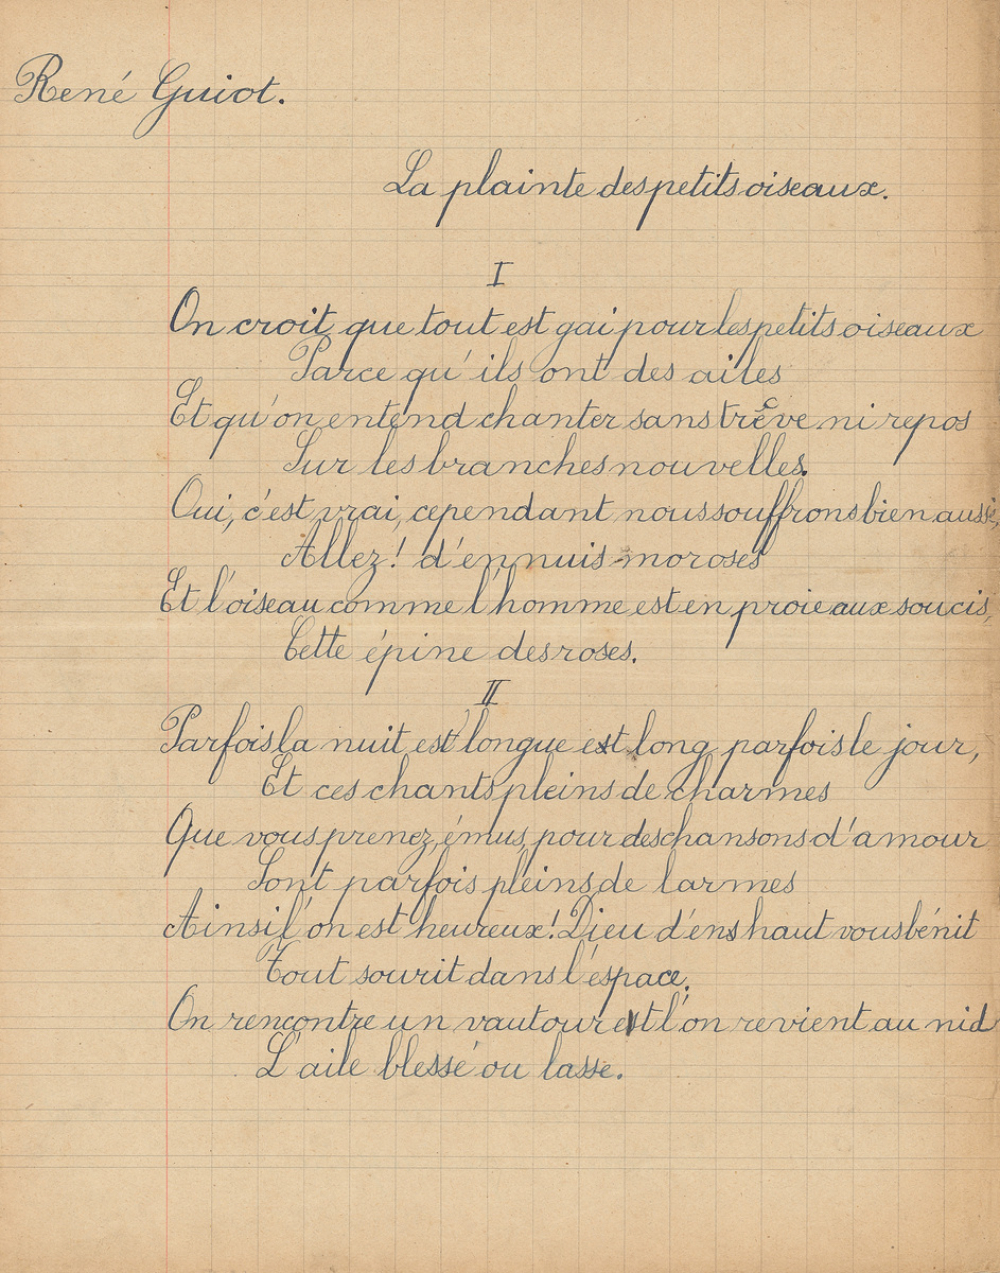 René Guiot.
La plainte des petits oiseaux.
I
On croit que tout est gai pour les petits oiseaux
Parce qu'ils ont des ailes
Et qu'on entend chanter sans trêve ni repos
Sur les branches nouvelles.
Oui, c'est vrai, cependant nous souffrons bien aussi,
Allez! d'ennuis moroses
Et l'oiseau comme l'homme est en proie aux soucis,
Cette épine des roses.
II
Parfois la nuit est longue et long parfois le jour,
Et ces chants pleins de charmes
Que vous prenez, émus, pour des chansons d'amour
Sont parfois pleins de larmes
Ainsi l'on est heureux! Dieu d'en haut vous bénit
Tout sourit dans l'espace.
On rencontre un vautour et l'on revient au nid
L'aile blessé ou lasse.